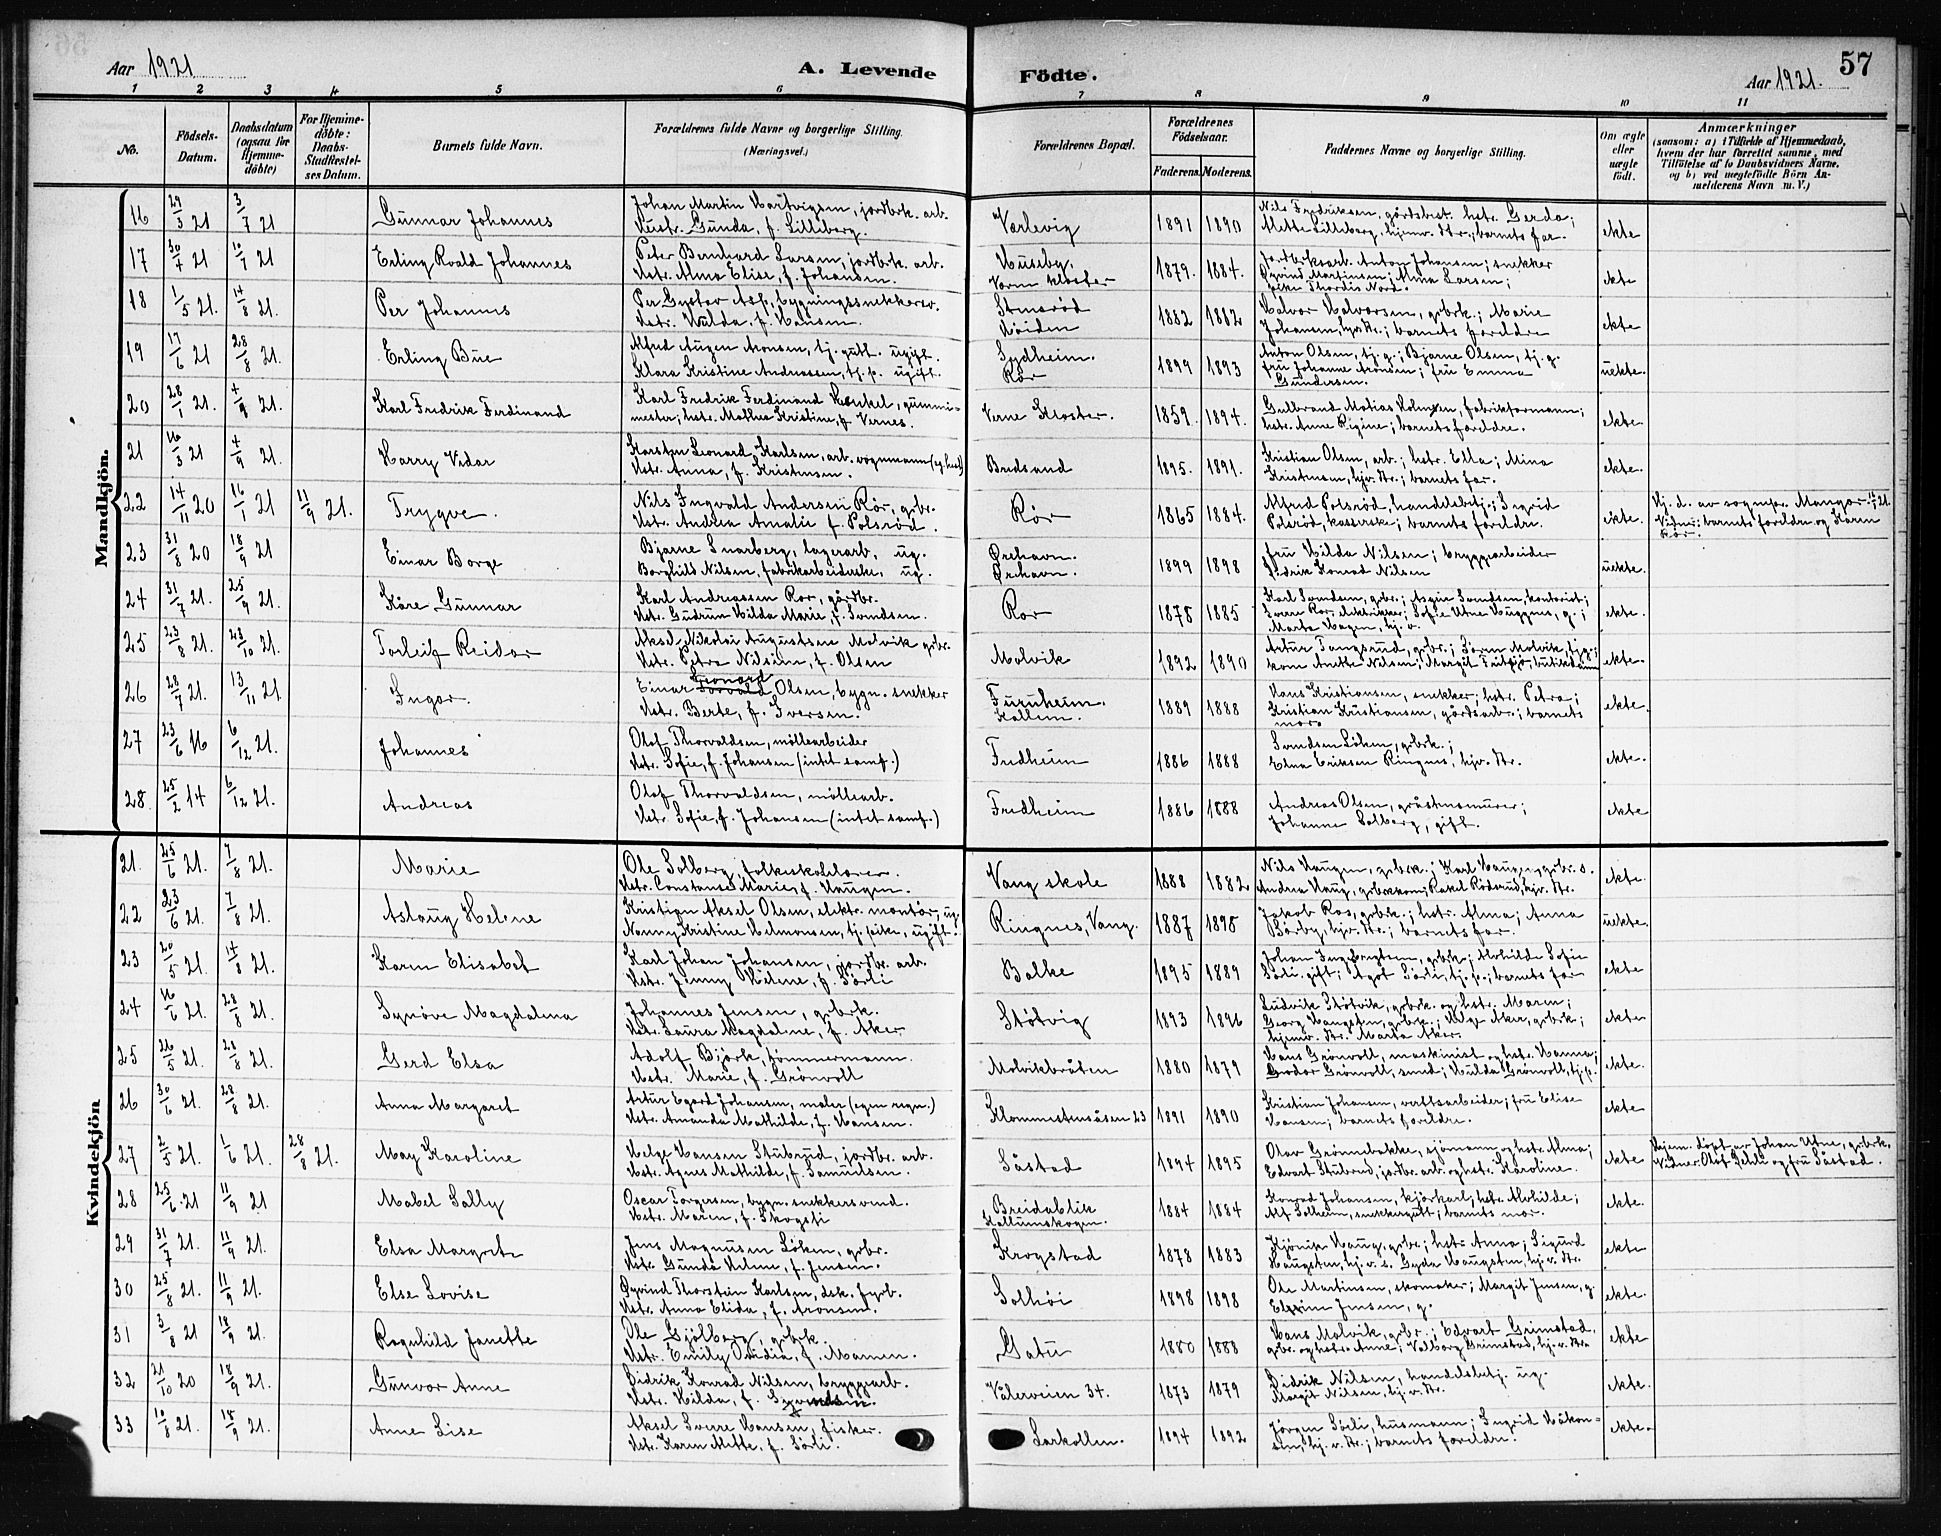 Aar 1921
A. Levende Födte.
57
Aar 1921.
1 2 3 4 5 6 7 8 9 10 11
No.
Födsels-
Datum.
Daabsdatum
(ogsaa for
Hjemme-
döbte)
For Hjemme-
döbte:
Daabs-
Stadfæstel-
ses Datum.
Barnets fulde Navn.
Forældrenes fulde Navne og borgerlige Stilling.
(Næringsvei.)
Forældrenes Bopæl.
Forældrenes
Födselsaar.
Faderens. Moderens.
Faddernes Navne og borgerlige Stilling.
Om ægte
eller
uægte
födt.
Anmærkninger
(saasom: a) i Tilfælde af Hjemmedaab,
hvem der har forrettet samme, med
Tilföielse af to Daabsvidners Navne,
og b) ved uægtefödte Börn An-
melderens Navn m. V.)
Mandkjön.
16 29/3 21 3/7 21 Gunnar Johannes
Johan Martin Hartvigsen, jordbrk. arb.
Hustr. Gunda, f. Lilleberg.
Værlevig 1891 1890
Nils Fredriksen, gårdsbest. hstr. Gerda;
Mette Lilleberg, hjemv. dtr.; barnets far.
ekte
17 30/4 21 10/7 21 Erling Roald Johannes
Peter Bernhard Larsen, jordbrk. arb.
Hstr. Alma Elise, f. Johansen.
Huseby,
Værne kloster 1879. 1884.
Jordbrksarb. Anton Johansen; snekker
Øyvind Martinsen; Alma Larsen;
Thordis Nord.
ekte
18 1/5 21. 14/8 21. Per Johannes
Per Gustav Asp, bygningssnekkersv.
Hstr. Hulda, f. Hansen.
Stensröd
Höiden 1882 1882
Halvor Halvorsen, grbrk.; Marie
Johansen, hjv. dtr.; barnets foreldre
ekte
19 17/6 21 28/8 21. Erling Bue
Alfred Augen Aronsen, tj. gutt. ugift.
Klara Kristine Andreassen, tj. p. ugift.
Sydheim.
Rör 1899 1893
Anton Olsen, tj. g.; Bjarne Olsen, tj. g.
fru Johanne Aronsen; fru Emma
Gundersen.
uekte.
20 28/1 21. 4/9 21. Karl Fredrik Ferdinand
Karl Fredrik Ferdinand Henkel, gummi-
mester; hstr. Mathea Kristine, f. Vernes.
Verne Kloster. 1859. 1894.
Gulbrand Matias Holmsen, fabrikformann;
hstr. Anne Rigine; barnets foreldre.
ekte.
21 16/3 21 4/9 21. Harry Vidar
Karsten Leonard Karlsen, arb. vognmann (eg. hest)
Hstr. Anna, f. Kristensen.
Bredsand 1895. 1891.
Kristian Olsen, arb.; hstr. Ella; Mina
Kristensen, hjv. dtr.; barnets far.
ekte.
22 14/11 20 16/1 21 11/9 21. Trygve.
Nils Ingvald Andersen Rör, grbr.
Hstr. Andrea Amalie f. Polsröd.
Rör 1865 1884.
Alfred Polsröd, handelsbetj.; Ingrid
Polsröd, kassererske; barnets foreldre.
ekte.
Hj. d. av sognepr. Mangor 16/1 21.
Vidner: barnets foreldre og Karen
Rör.
23 31/8 20 18/9 21 Einar Borge
Bjarne Snarberg, lagerarb, ug.
Borghild Nilsen, fabrikarbeiderske, ug.
Ørehavn.
Ørehavn. 1899 1898
fru Hilda Nilsen; bryggearbeider
Didrik Konrad Nilsen
uekte.
24 31/7 21. 25/9 21. Kåre Gunnar
Karl Andreassen Rör, gårdbr.
Hstr. Gudrun Hilda Marie, f. Svendsen.
Rör 1878 1885
Karl Svendsen, grbr.; Asgir Svendsen, kontorist;
Sverre Rör, elektriker; Sofie Utne Huggenes, g.;
Marta Hagen, hj. v.
ekte.
25 23/8 21. 23/10 21. Torleif Reidar
Aksel Nikolai Augustsen Molvik grbr.
Hstr. Petra Nilsine, f. Olsen
Molvik 1892 1890
Artur Tangsrud, grbr.; Sören Molvik, tj. g.;
kone Anette Nilsen; Margit
ekte.
26 28/7 21. 13/11 21. Ingar.
Leonard
Einar Torvald Olsen, bygn. snekker
Hstr. Berte, f. Iversen.
Furuheim.
Kallum. 1889 1888
Hans Kristiansen, snekker; hstr. Petra;
Kristian Kristiansen, gårdsarb.; barnets
mor.
ekte.
27 23/6 16 6/12 21. Johannes
Olof Thorvaldsen, möllearbeider
Hstr. Sofie, f. Johansen (intet samf.)
Fredheim 1886 1888
Svendsen Löken, grbrk.;
Elna Eriksen Ringnes, hjv. dtr.
ekte.
28. 25/2 14 6/12 21. Andreas
Olof Thorvaldsen, möllearb.
Hstr. Sofie, f. Johansen (intet samf.)
Fredheim 1886 1888
Andreas Olsen, gråstensmurer;
Johanne Solberg, gift.
ekte
Kvindekjön
21. 25/6 21. 7/8 21. Marie
Ole Solberg, folkeskolelærer.
Hstr. Constanse Marie, f. Haugen.
Vang skole 1888 1882
Nils Haugen, grbrk.; Karl Haugen, grbr. s.
Andrea Haug, grbrkkone; Rakel Rödsrud, hjv. dtr.
ekte.
22 23/6 21. 7/8 21. Aslaug Helene
Kristian Aksel Olsen, elektr. montör, ug.
Nanny Kristine Helmersen, tj. pike, ugift.
Ringnes, Vang. 1887 1898
Jakob Ros, grbrk.; hstr. Alma; Anna
Bårby, hjv. dtr.; barnets far.
uekte.
23 20/5 21. 14/8 21. Karen Elisabet
Karl Johan Johansen, jordbr. arb.
Hstr. Jenny Helene, f. Sörli
Balke 1895 1889
Johan Ingebrigtsen, grbrk; Alvhilde Sofie
Sörli, gift; Ågot Sörli, tj. p.; barnets far
ekte
24 16/6 21. 28/8 21. Synöve Magdalena
Johannes Jensen, grbrk.
Hstr. Laura Magdalene, f. Aker
Stötvig 1893 1896
Ludvik Stötvik, grbrk. og hstr. Maren;
Georg Haugsten, grbrk.; Helge Aker, grbrk;
hjemv. dtr. Marta Aker.
ekte
25 26/5 21. 28/8 21. Gerd Elsa
Adolf Björk, tömmermann.
Hstr. Marie, f. Grönvoll
Molvikbråten 1880 1879
Hans Grönvoll, maskinist og hstr. Hanna;
Grönvoll, smed; Hulda Grönvoll, tj. p.
ekte.
26 30/6 21. 28/8 21. Anna Margaret
Artur Egard Johansen, maler (egen regn.)
Hstr. Amanda Mathilde, f. Hansen.
Klommestensåsen 23 1891 1890
Kristian Johansen, verftsarbeider; fru Elise
Hansen; barnets foreldre.
ekte
27 2/5 21. 1/6 21. 28/8 21. May Karoline
Helge Hansen Stubrud, jordbr. arb.
Hstr. Agnes Mathilde, f. Samuelsen.
Såstad 1894 1895
Olav Grönnebakke, sjömann og hstr. Alma;
Edvart Stubrud, jordbr. arb. og hstr. Karoline.
ekte
Hjem. döpt av Johan Utne, grbrk.
Vidner: Olof Dehli og fru Såstad.
28 25/6 21 11/9 21 Mabel Sally
Oscar Torgersen, bygn. snekkersvend.
Hstr. Maren, f. Skogsti
Breidablik
Kallumskogen. 1884 1884
Konrad Johansen, kjörkarl; hstr. Alvhilde;
Alf Solheim, snekkergutt; barnets mor.
ekte.
29 31/7 21. 11/9 21. Elsa Margrete
Jens Magnusen Löken, grbr.
Hstr. Gunda Helene, f. Jensen.
Krogstad 1878 1883
Haug, grbr.; hstr. Anna; Sigurd
Haugsten, hj. v. s. Gyda Haugsten, hj. v. dtr.
ekte
30 25/8 21. 11/9 21. Else Lovise
Øyvind Thorstein Karlsen, dek. fyrb.
Hstr. Anna Elida, f. Aronsen.
Solhöi 1898 1898
Ole Martinsen, skomaker; Margit Jensen, g.
Jensen, g.
ekte.
31 3/8 21 18/9 21. Ragnhild Janette
Ole Gjölberg, grbrk.
Hstr. Emily Ovidia, f. Mamen.
Gatu 1880 1888
Hans Molvik, grbr.; Edvart Grimstad,
grbr. og hstr. Anne; Valborg Grimstad, hj. v. dtr.
ekte
32 21/10 20 18/9 21. Gunvor Anne
Didrik Konrad Nilsen, bryggearb.
Hstr. Hilda, f.
Vålerveien 34. 1873 1879
Didrik Nilsen, handelsbetj. ug.
Margit Nilsen, hj. v. dtr.
ekte.
33 10/8 21. 18/9 21. Anne Lise
Aksel Sverre Hansen, fisker.
Hstr. Karen Mette, f. Sörli.
Larkollen. 1894 1892
Jörgen Sörli, husmann; Ingrid Håkon-
sen, hj. v. dtr.; barnets foreldre.
ekte.